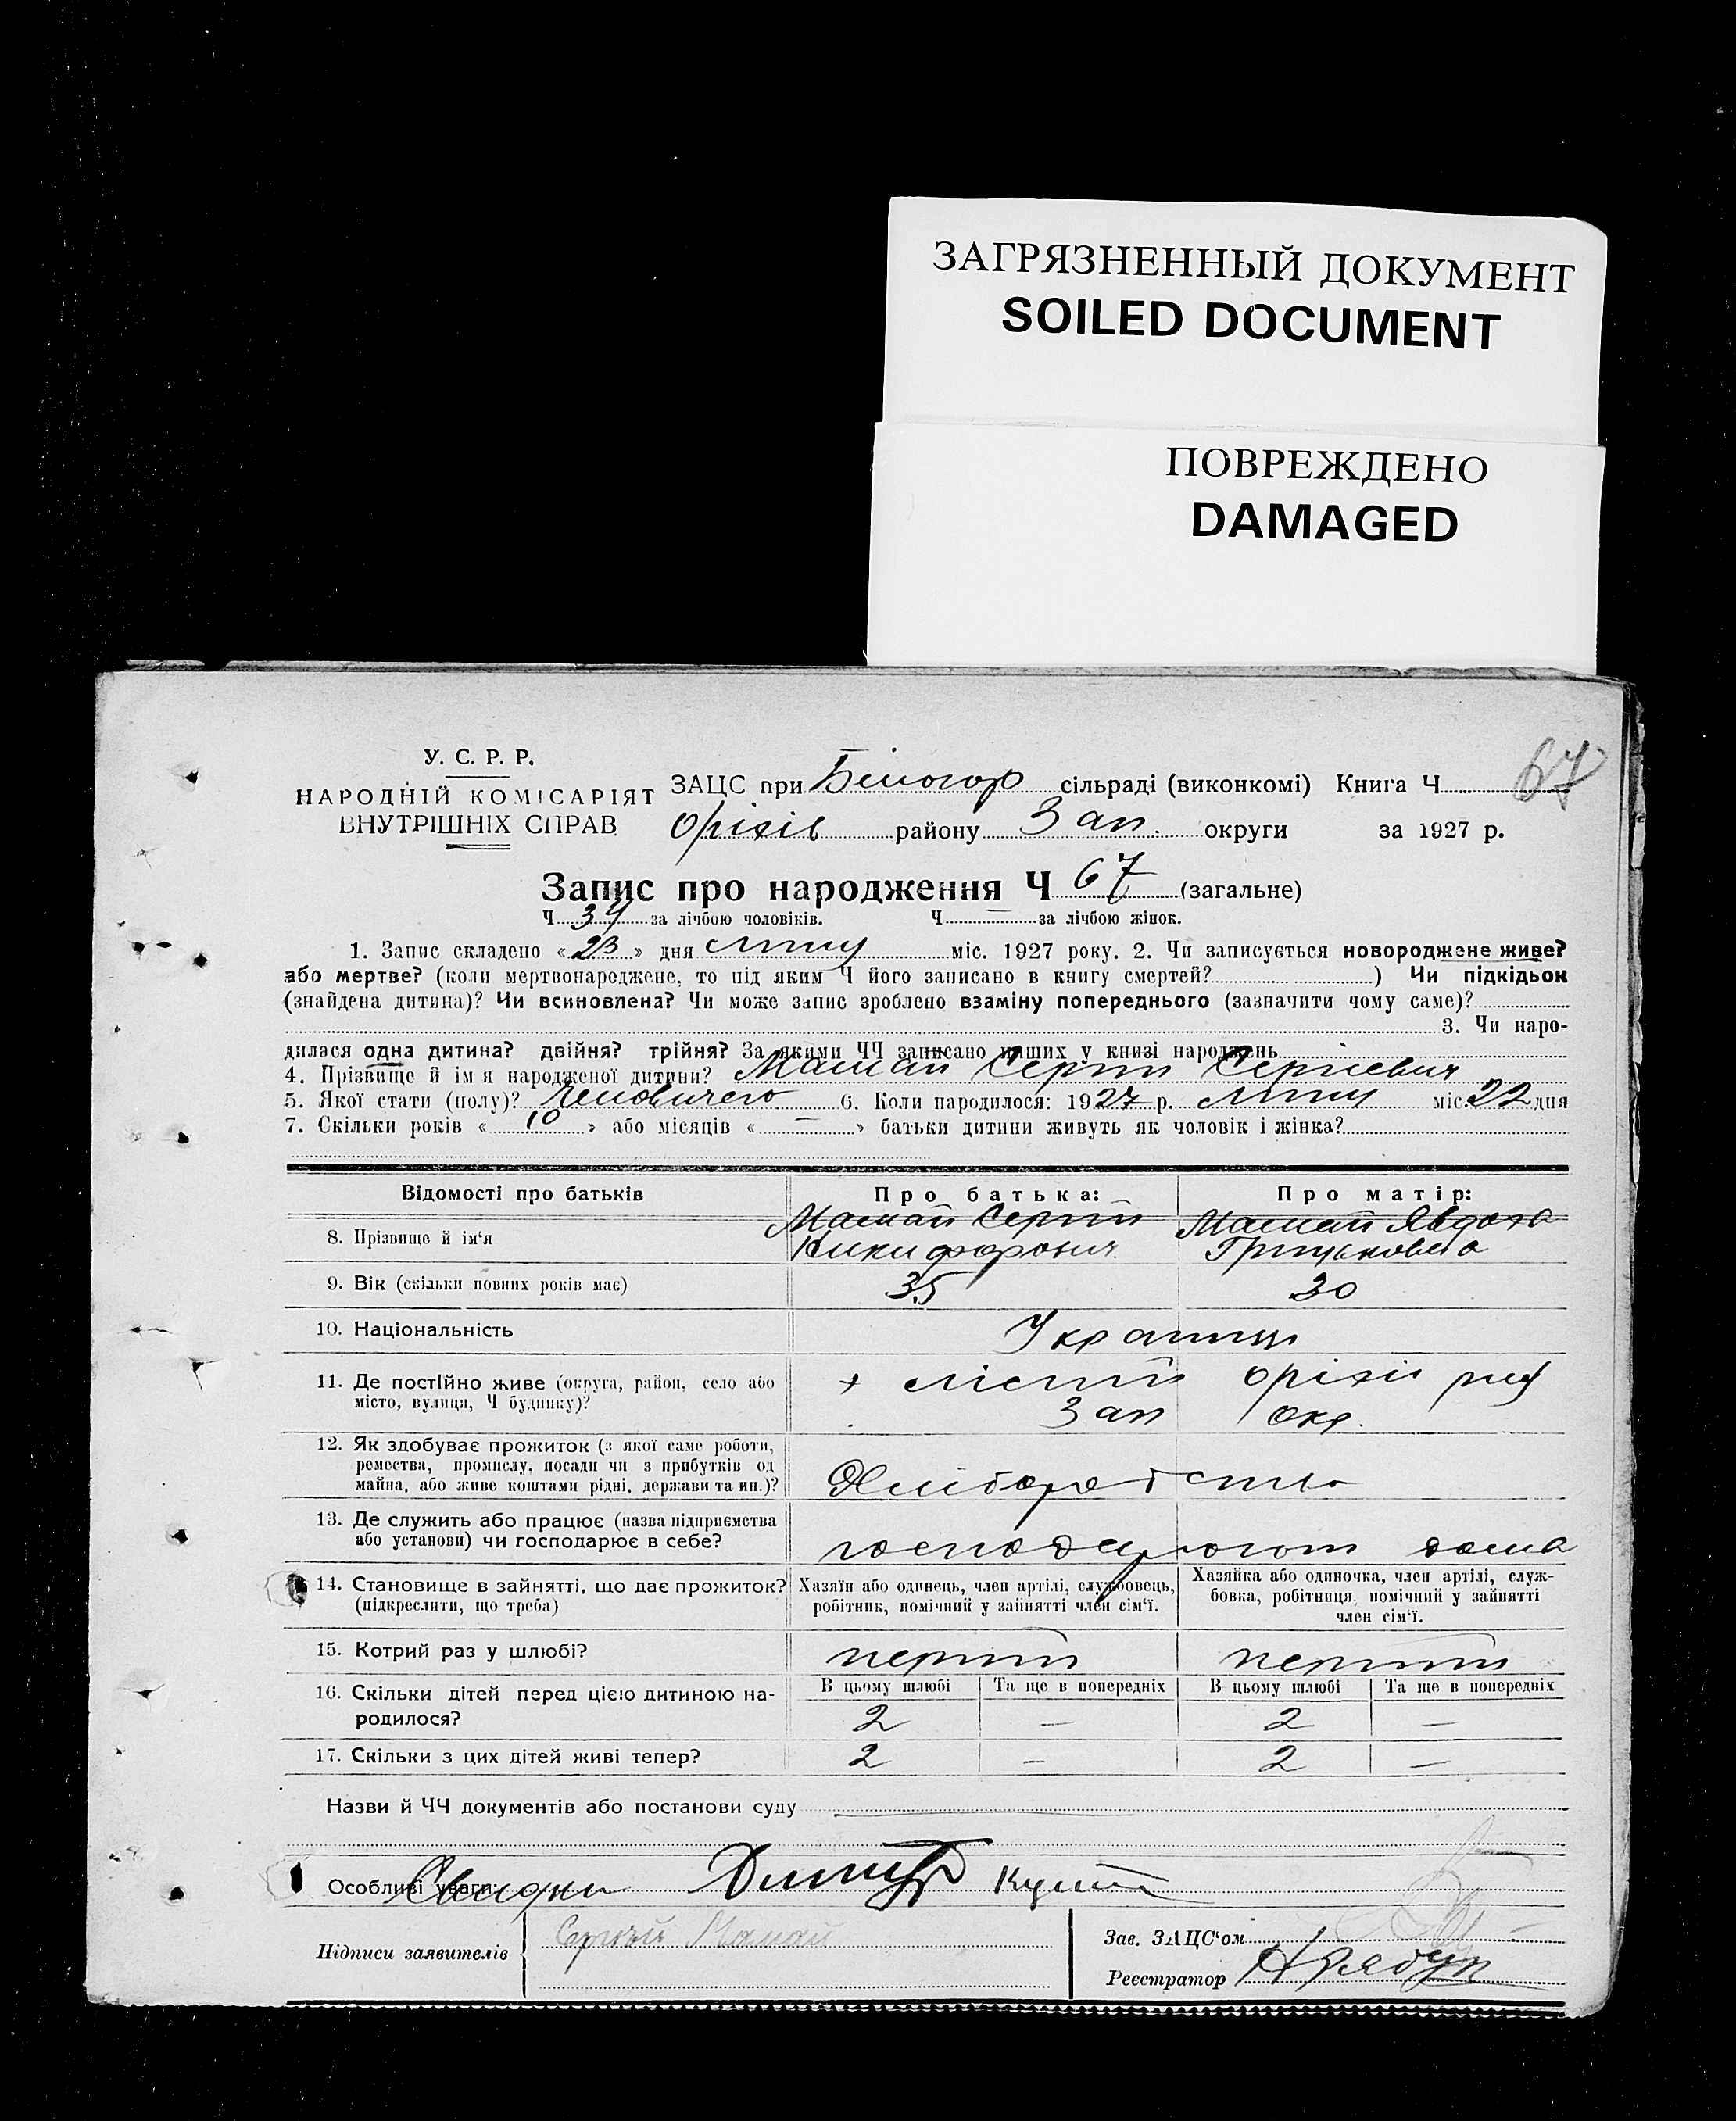 ЗАГРЯЗНЕННЫЙ ДОКУМЕНТ
SOILED DOCUMENT
ПОВРЕЖДЕНО
DAMAGED
У. С. Р. Р.
НАРОДНІЙ КОМІСАРІЯТ
ВНУТРІШНІХ СПРАВ
ЗАЦС при Білогор сільраді (виконкомі) Книга Ч 67
Оріхів району Зап. округи за 1927 р.
Запис про народження Ч 67 (загальне)
Ч 34 за лічбою чоловіків. Ч — за лічбою жінок.
1. Запис складено « 23 » дня міс. 1927 року. 2. Чи записується новороджене живе?
або мертве? (коли мертвонароджене, то під яким Ч його записано в книгу смертей? ) Чи підкідьок
(знайдена дитина)? Чи всиновлена? Чи може запис зроблено взаміну попереднього (зазначити чому саме)?
3. Чи наро-
дилася одна дитина? двійня? трійня? За якими ЧЧ записано инших у книзі народжень
4. Прізвище й імя народженої дитини? Мамай Сергій Сергієвич
5. Якої стати (полу)? 6. Коли народилося: 1927 р. міс. 22 дня
7. Скільки років « 10 » або місяців « — » батьки дитини живуть як чоловік і жінка?
Відомості про батьків
Про батька:
Про матір:
8. Прізвище й ім‘я
Мамай Сергій
Никифорович
Мамай Явдоха
9. Вік (скільки повних років має)
35
30
10. Національність
Українці
11. Де постійно живе (округа, район, село або
місто, вулиця, Ч будинку)?
Оріхів
Зап Окр.
12. Як здобуває прожиток (з якої саме роботи,
ремества, промислу, посади чи з прибутків од
майна, або живе коштами рідні, держави та ин.)?
Хліборобство
13. Де служить або працює (назва підприємства
або установи) чи господарює в себе?
господарюють дома
14. Становище в зайнятті, що дає прожиток?
(підкреслити, що треба)
Хазяїн або одинець, член артілі, службовець,
робітник, помічний у зайнятті член сім‘ї.
Хазяйка або одиночка, член артілі, служ-
бовка, робітниця, помічний у зайнятті
член сім‘ї.
15. Котрий раз у шлюбі?
перший
перший
16. Скільки дітей перед цією дитиною на-
родилося?
В цьому шлюбі
Та ще в попередніх
В цьому шлюбі
Та ще в попередніх
2 — 2 —
17. Скільки з цих дітей живі тепер?
2 — 2 —
Назви й ЧЧ документів або постанови суду
Особливі уваги:
Підписи заявителів
Мамай
Зав. ЗАЦС‘ом
Реєстратор